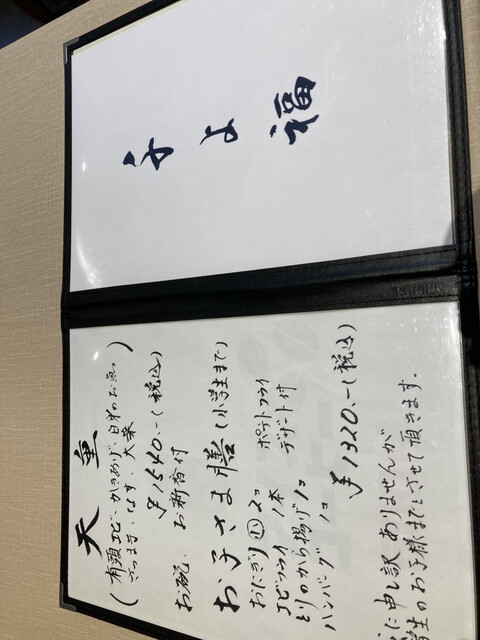 みよ福
天重
(有頭エビ、かきあげ、白身のお魚
さつまいも、なす、大葉)
¥1540.-(税込)
お碗、お新香付
お子さま膳(小学生まで)
おにぎり㊙2コ ポテトフライ
エビフライ 1本 デザート付
とりのから揚げ 1コ
ハンバーグ 1コ
¥1320.-(税込)
に申し訳ありませんが
学生のお子様までとさせて頂きます。